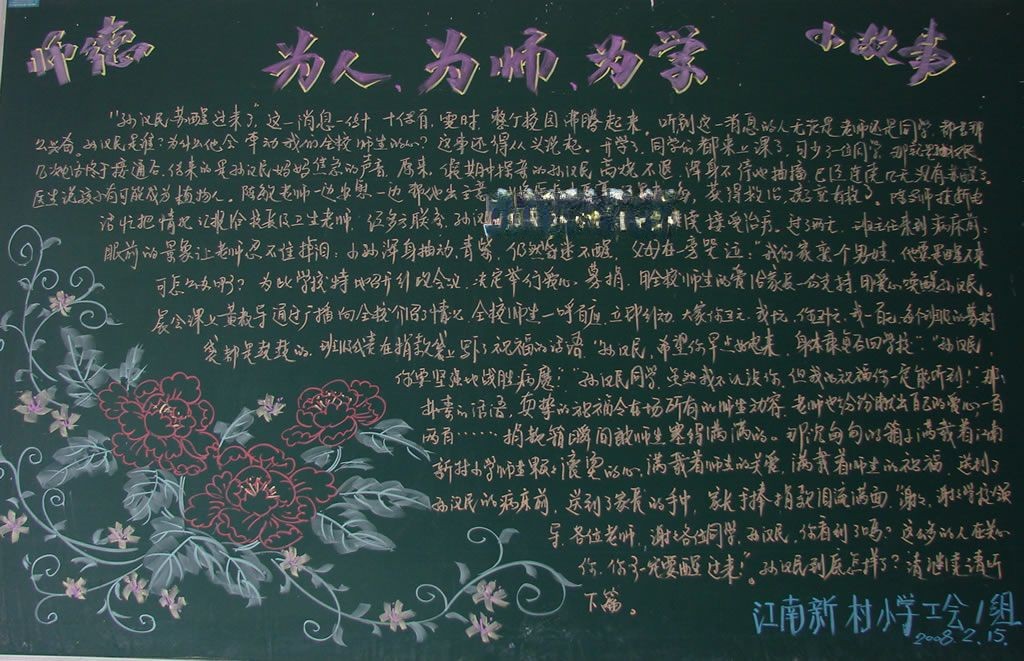 师德 为人、为师、为学 小故事
"孙汉民苏醒过来了",这一消息一传十,十传百,霎时,整个校园沸腾起来。听到这一消息的人无论是老师还是同学,都
孙汉民是谁?为什么他会牵动我们全校师生的心?这事还得从头说起。开学了,同学们都来上课了,可少了一位同学,那就是孙汉民。
电话终于接通后,传来的是孙汉民妈妈焦急的声音,原来,假期中探亲的孙汉民高烧不退,浑身不停地抽搐,已经连续几天没有苏醒了。
医生说该小有可能成为植物人。陈敏老师一边安慰一边帮他出主意 获得救治,孩子就有救了。陈老师挂断电
话忙把情况汇报给校长及卫生老师,经多方联系,孙汉 接受治疗。过了两天,班主任来到病床前:
眼前的景象让老师忍不住掉泪:小孙浑身抽动,青紫,仍然昏迷不醒,父母在一旁哭泣:"我们家就一个男娃,他要是醒不来
可怎么办啊?"为此学校特地召开行政会议,决定举行爱心募捐,用全校师生的爱给家长一份支持,用爱心唤醒孙汉民。
晨会课上黄教导通过广播向全校介绍了情况,全校师生一呼百应,立即行动,大家你五元,我十元,你五十元,我一百元,每个班的募捐
袋都是鼓鼓的,班级代表在捐款袋上写了祝福的话语:"孙汉民,希望你早点好起来,身体康复后回学校!""孙汉民,
你要坚强地战胜病魔!""孙汉民同学,虽然我不认识你,但我的祝福你一定能听到!"那
朴素的话语,真挚的祝福令在场所有的师生动容,老师也纷纷献出自己的爱心,一百
两百……捐款箱瞬间被师生塞得满满的。那沉甸甸的箱子满载着江南
新村小学师生颗颗滚烫的心,满载着师生的关爱,满载着师生的祝福,送到了
孙汉民的病床前,送到了家长的手中,家长手捧捐款泪流满面:"谢谢,谢谢学校领
导,各位老师,谢谢各位同学,孙汉民,你看到了吗?这么多的人在关心
你,你一定要醒过来!"孙汉民到底怎样了?请继续听
下篇。
江南新村小学工会1组
2008.2.15.